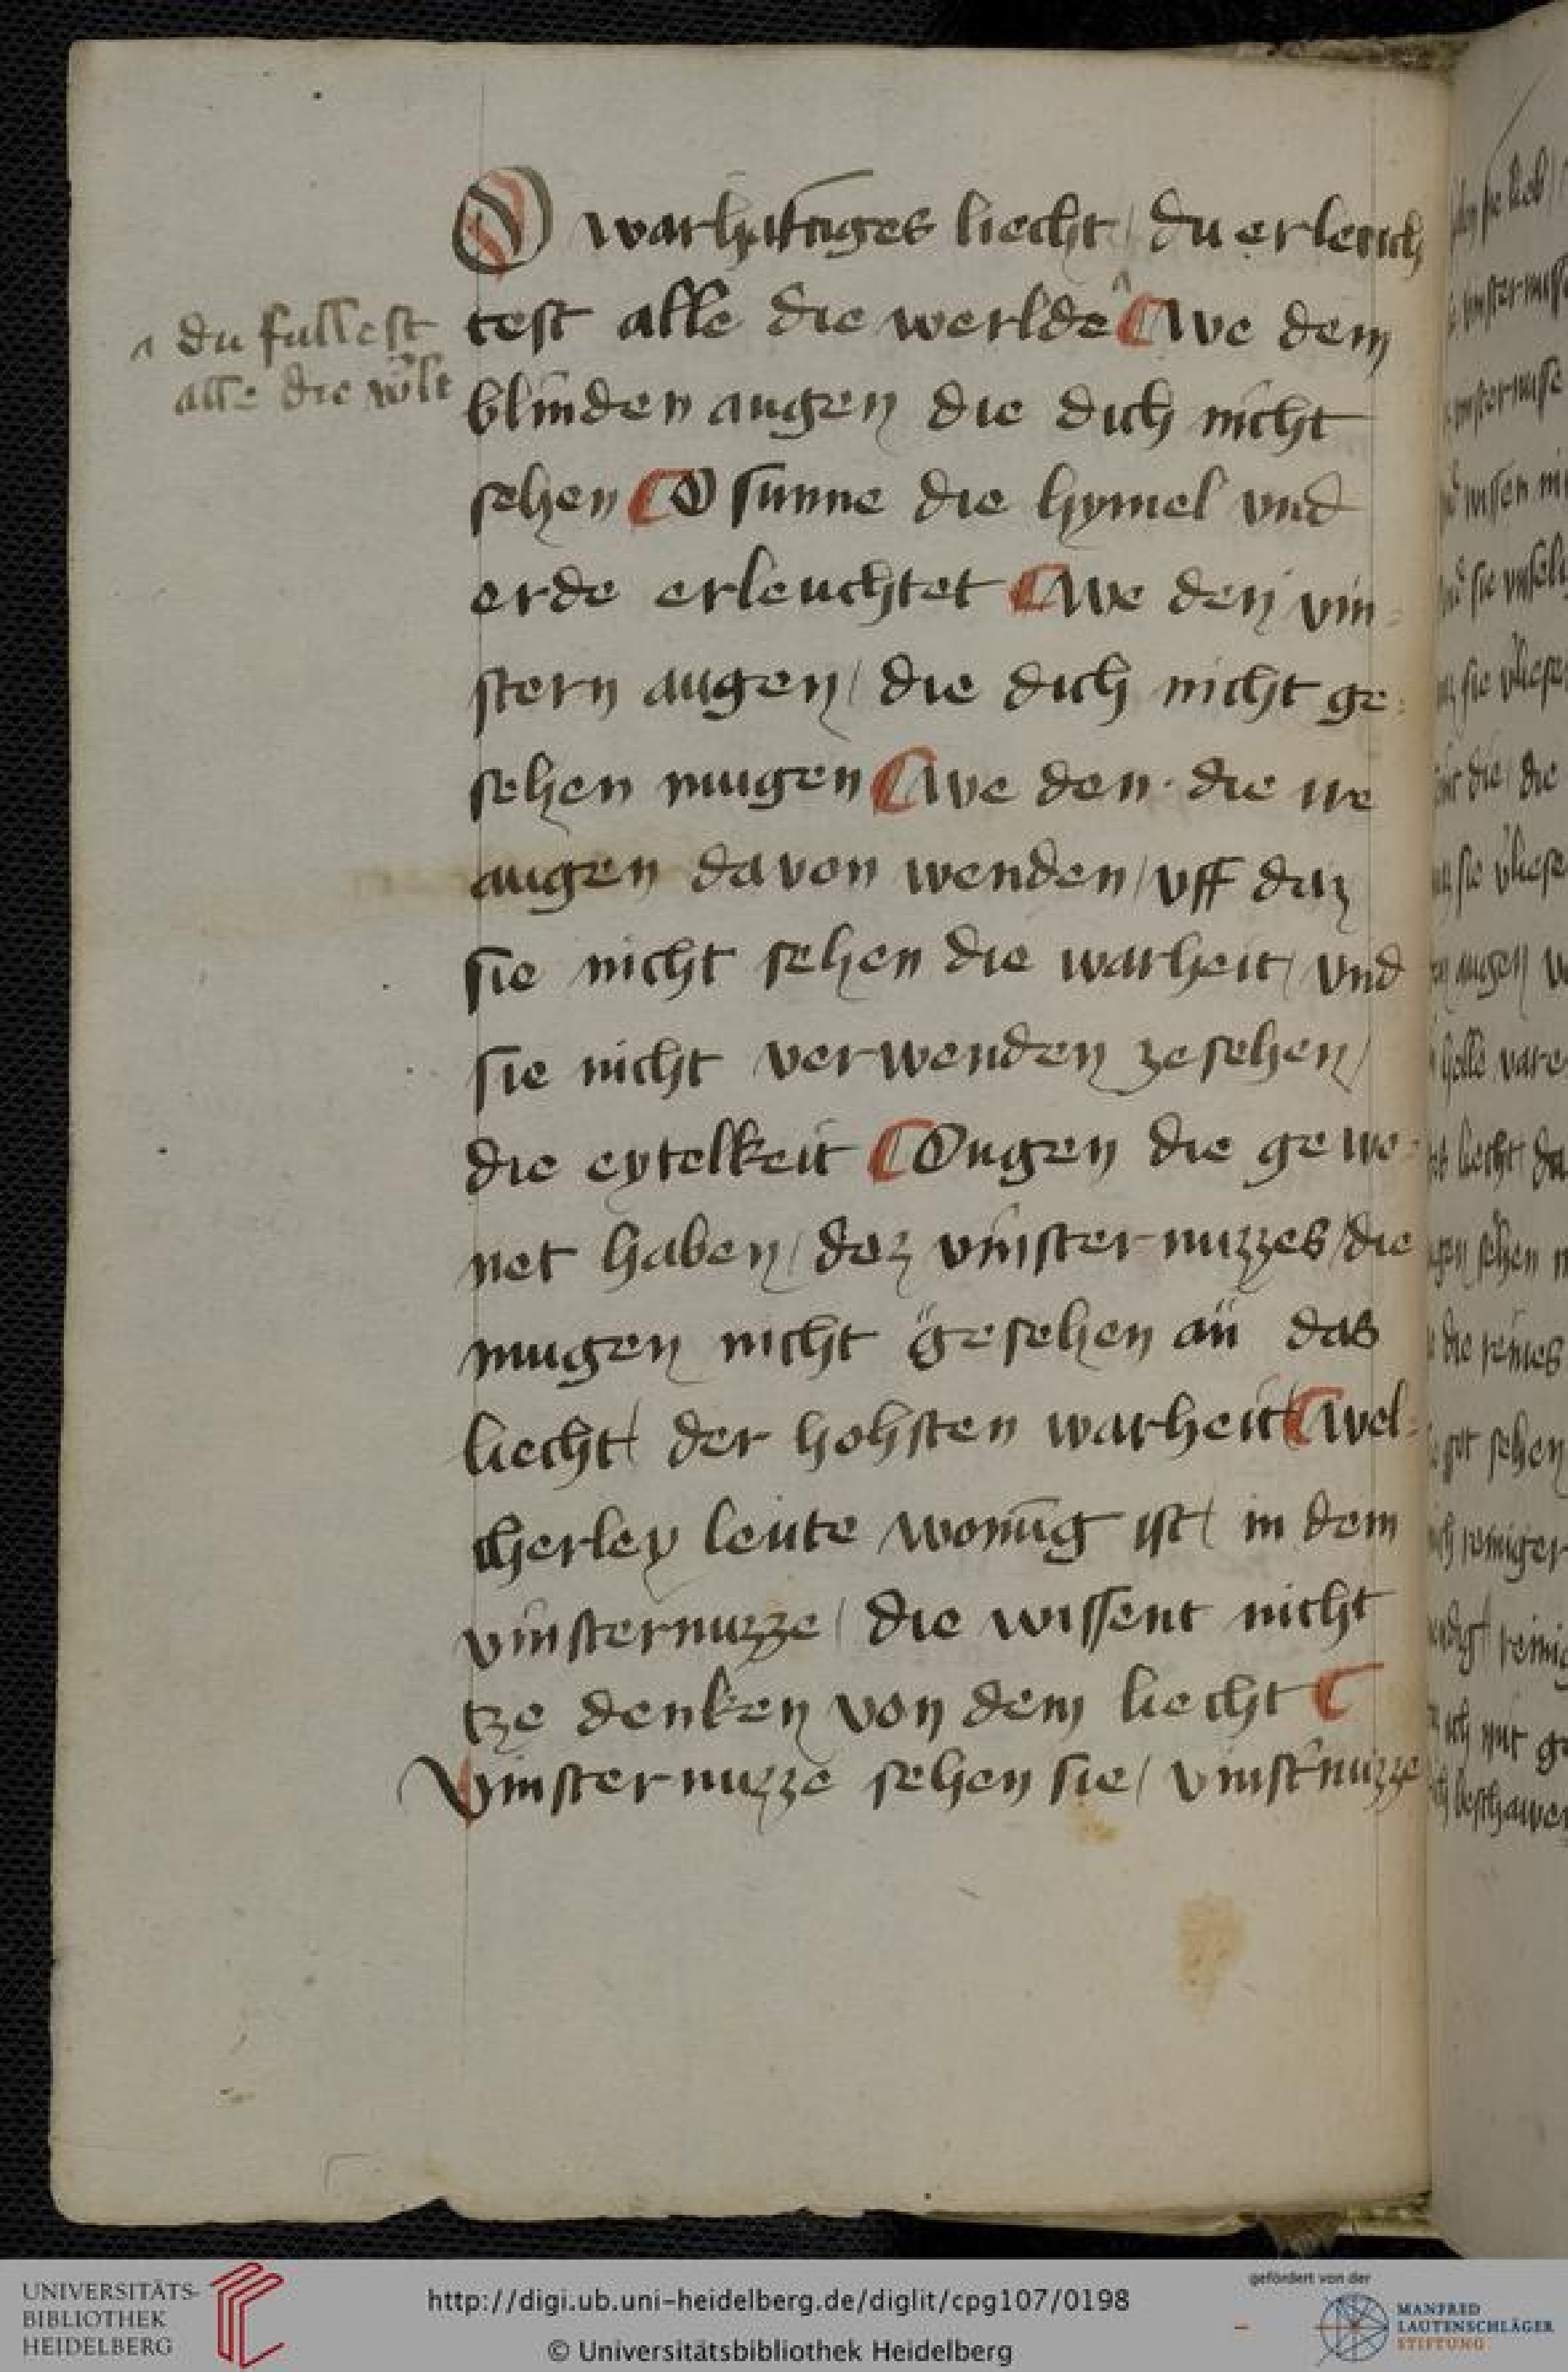 O warhafftiges liecht / du erleuch
test alle die werlde ^ ¶ We dem
^ du fullest
alle die w̍lt
blinden augen die dich nicht
sehen ¶ O sunne die hymel vnd
erde erleuchtet ¶ We den vin-
stern augen / die dich nicht ge-
sehen mugen ¶ We den · die ire
augen davon wenden / vff daz
sie nicht sehen die warheit / vnd
sie nicht verwenden ze sehen /
die eytelkeit ¶ Ougen die gewe-
net haben / dez vinsternuzzes / die
mugen nicht gesehen an das
liecht / der hohsten warheit ¶ Wel-
cherley leute wonu̅g ist / in dem
vinsternuzze / die wissent nicht
tze denken von dem liecht ¶
Vinsternuzze sehen sie / vinst̛nuzze
UNIVERSITÄTS-
BIBLIOTHEK
HEIDELBERG
http://digi.ub.uni-heidelberg.de/diglit/cpg107/0198
© Universitätsbibliothek Heidelberg
gefördert von der
MANFRED
LAUTENSCHLÄGER
STIFTUNG